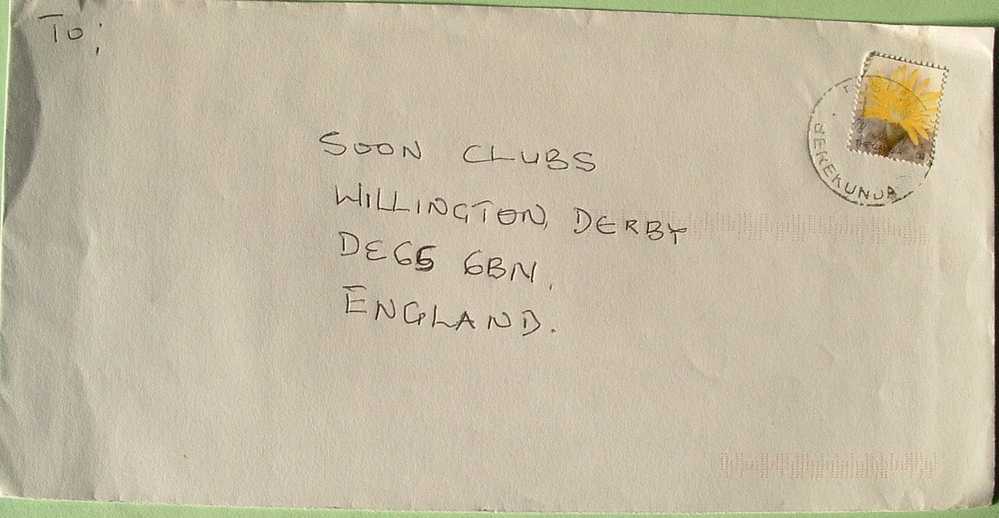 To;
SOON CLUBS
WILLINGTON, DERBY
DE65 6BN,
ENGLAND.
SEREKUNDA